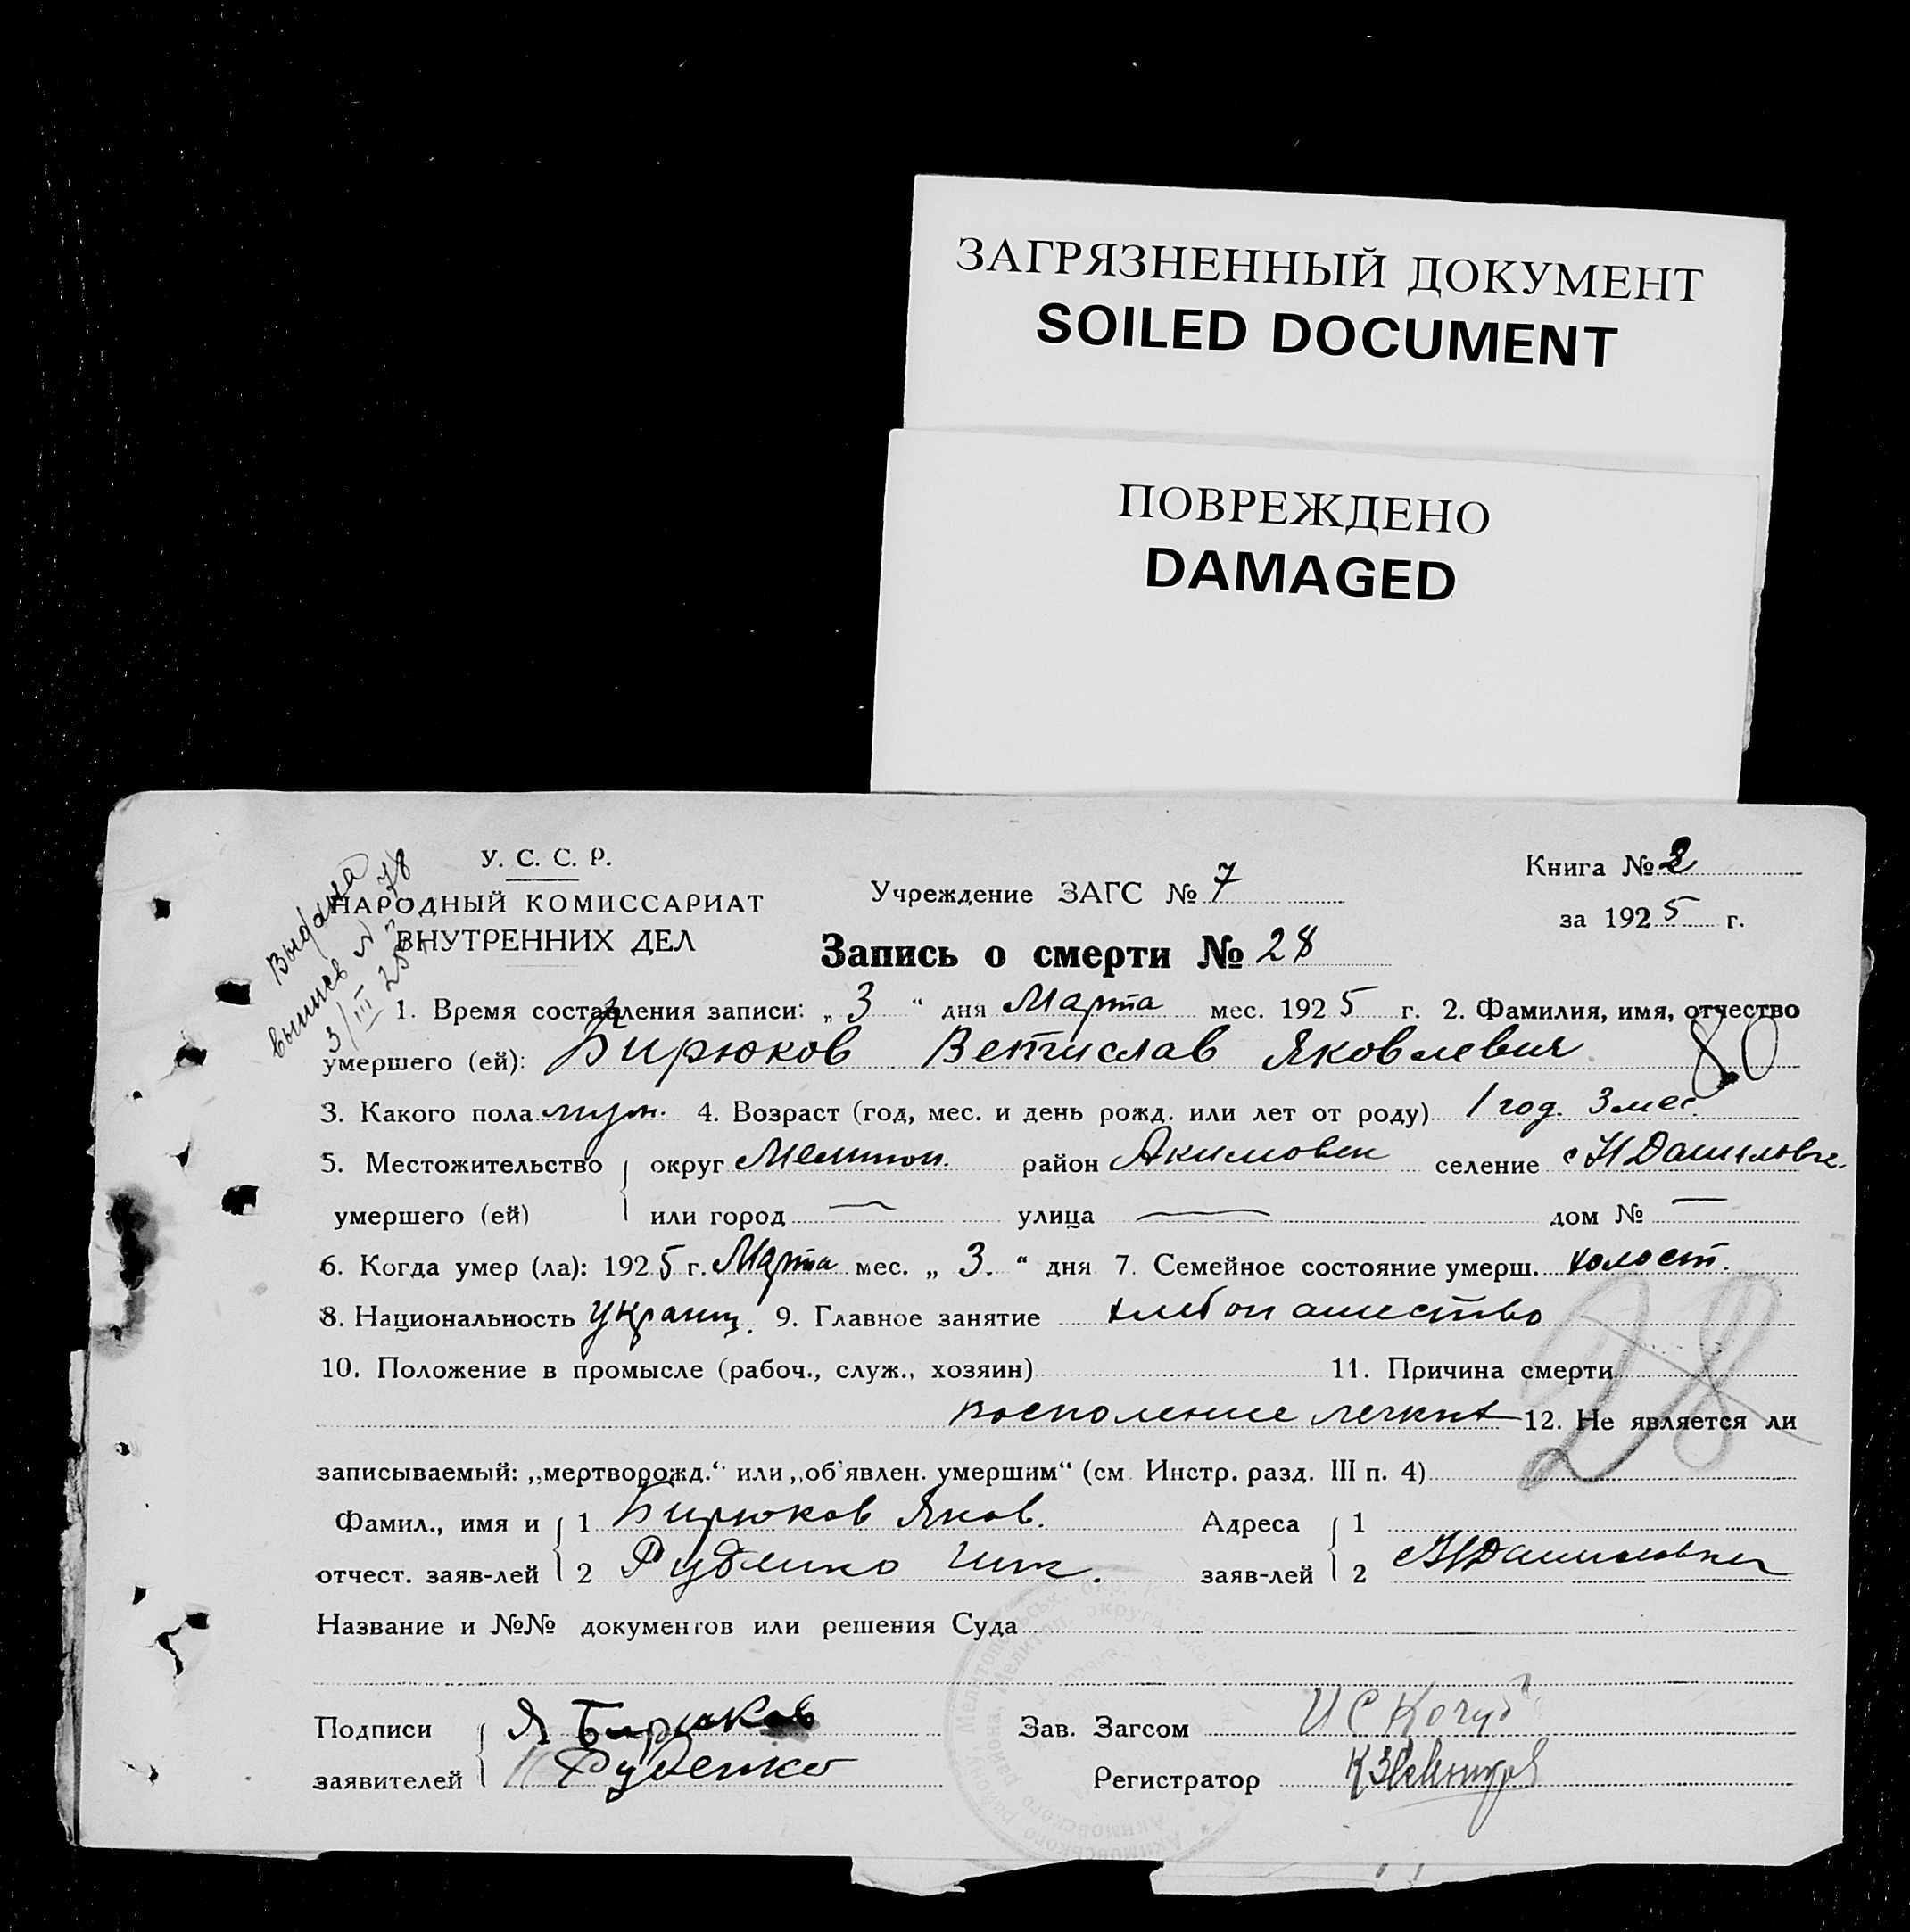 ЗАГРЯЗНЕННЫЙ ДОКУМЕНТ
SOILED DOCUMENT
ПОВРЕЖДЕНО
DAMAGED
У. С. С. Р.
НАРОДНЫЙ КОМИССАРИАТ
ВНУТРЕННИХ ДЕЛ
Выдана
выпись № 78
3/III 25 г.
Учреждение ЗАГС № 7
Книга № 2
за 1925 г.
Запись о смерти № 28
1. Время составления записи: „ 3 “ дня Марта мес. 1925 г. 2. Фамилия, имя, отчество
умершего (ей): Бирюков Ветислав Яковлевич
80
3. Какого пола муж. 4. Возраст (год, мес. и день рожд. или лет от роду) 1 год. 3 мес.
5. Местожительство округ Мелитоп. район Акимовск селение с Н Даниловке.
умершего (ей) или город — улица — дом № —
6. Когда умер (ла): 1925 г. Марта мес. „ 3. “ дня 7. Семейное состояние умерш. холост.
8. Национальность Украин. 9. Главное занятие хлебопашество
28
10. Положение в промысле (рабоч., служ., хозяин) 11. Причина смерти
восполение легких 12. Не является ли
записываемый: „мертворожд.“ или „об'явлен. умершим“ (см. Инстр. разд. III п. 4)
Фамил., имя и 1 Бирюков Яков. Адреса 1
отчест. заяв-лей 2 Руденко заяв-лей 2 с Н Даниловка
Название и №№ документов или решения Суда
Подписи Я Бирюков Зав. Загсом И С
заявителей Руденко Регистратор